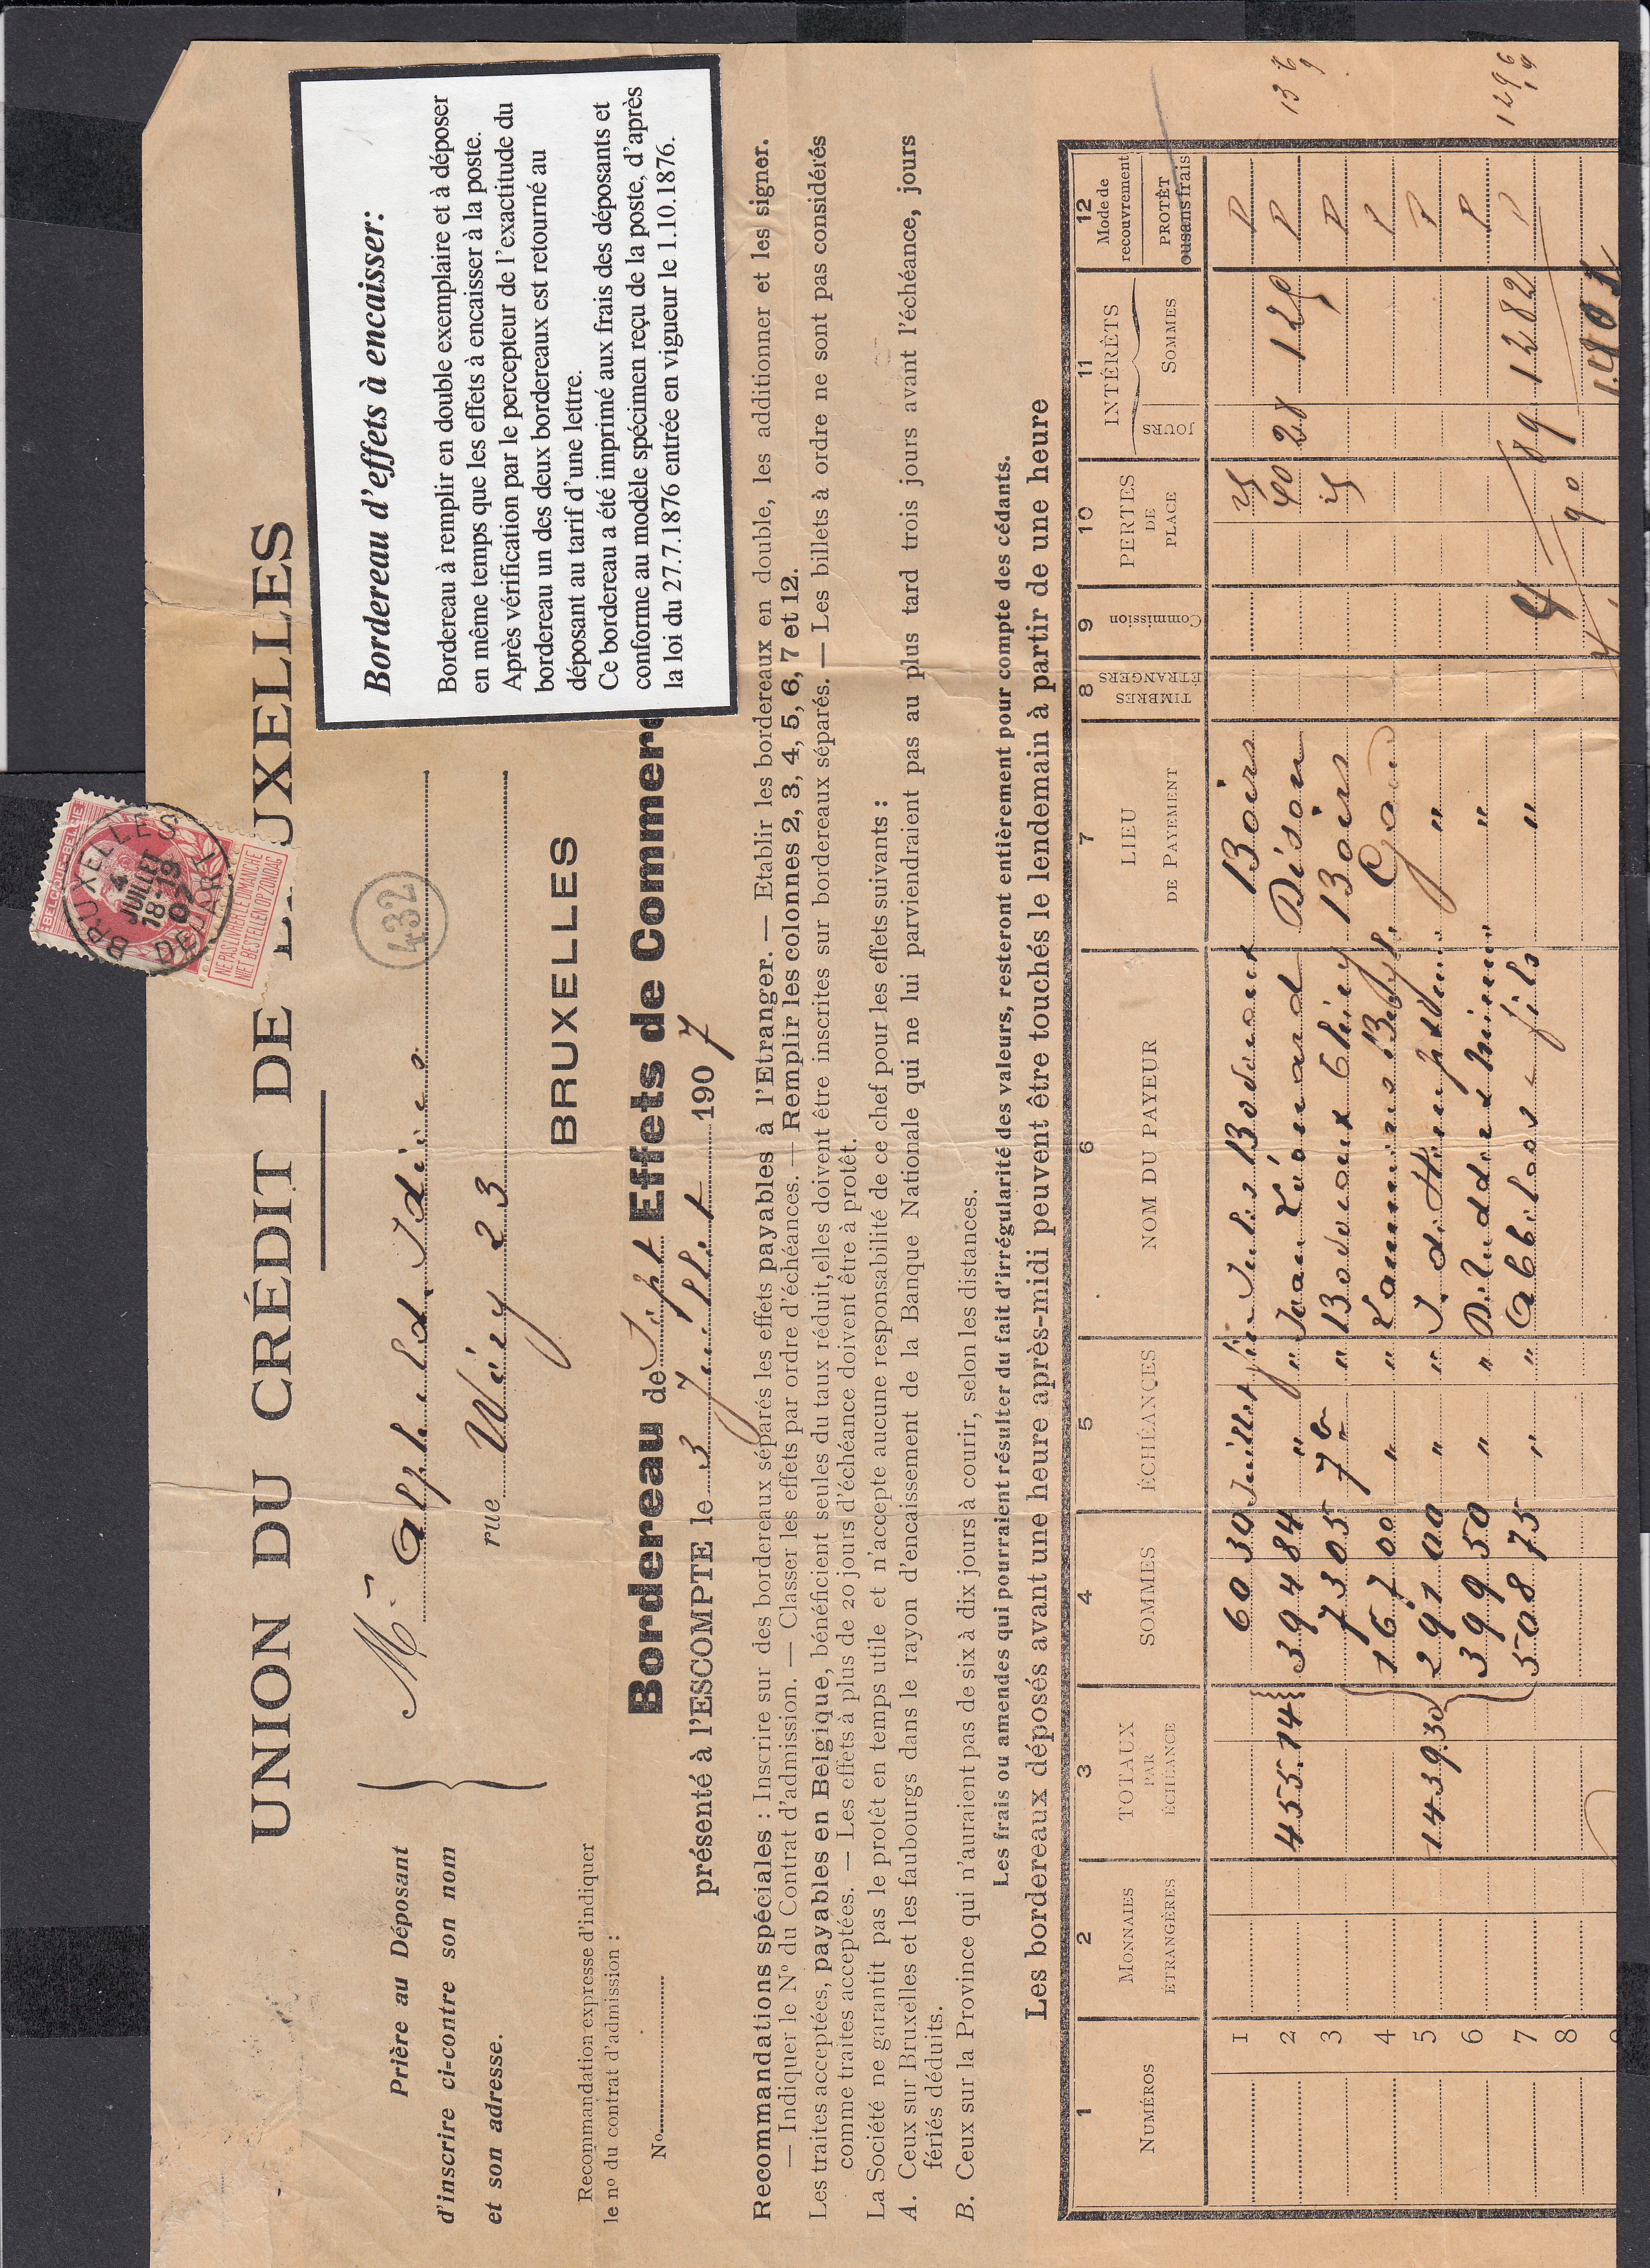 UNION DU CRÉDIT DE UXELLES
BELGIQUE·BELGIË
BRUXELLES
4
JUILLET
18-19
07
DEPART
NE PAS LIVRER LE DIMANCHE
NIET BESTELLEN OP ZONDAG
Prière au Déposant
d'inscrire ci-contre son nom
et son adresse.
M
432
rue Wéry 23
BRUXELLES
Recommandation expresse d'indiquer
le nº du contrat d'admission :
Nº
Bordereau de Sept Effets de Commerc
présenté à l'ESCOMPTE le 3 Juillet 1907
Bordereau d'effets à encaisser:
Bordereau à remplir en double exemplaire et à déposer
en même temps que les effets à encaisser à la poste.
Après vérification par le percepteur de l'exactitude du
bordereau un des deux bordereaux est retourné au
déposant au tarif d'une lettre.
Ce bordereau a été imprimé aux frais des déposants et
conforme au modèle spécimen reçu de la poste, d'après
la loi du 27.7.1876 entrée en vigueur le 1.10.1876.
Recommandations spéciales : Inscrire sur des bordereaux séparés les effets payables à l'Etranger. — Etablir les bordereaux en double, les additionner et les signer.
— Indiquer le Nº du Contrat d'admission. — Classer les effets par ordre d'échéances. — Remplir les colonnes 2, 3, 4, 5, 6, 7 et 12.
Les traites acceptées, payables en Belgique, bénéficient seules du taux réduit, elles doivent être inscrites sur bordereaux séparés. — Les billets à ordre ne sont pas considérés
comme traites acceptées. — Les effets à plus de 20 jours d'échéance doivent être à protêt.
La Société ne garantit pas le protêt en temps utile et n'accepte aucune responsabilité de ce chef pour les effets suivants :
A. Ceux sur Bruxelles et les faubourgs dans le rayon d'encaissement de la Banque Nationale qui ne lui parviendraient pas au plus tard trois jours avant l'échéance, jours
fériés déduits.
B. Ceux sur la Province qui n'auraient pas de six à dix jours à courir, selon les distances.
Les frais ou amendes qui pourraient résulter du fait d'irrégularité des valeurs, resteront entièrement pour compte des cédants.
Les bordereaux déposés avant une heure après-midi peuvent être touchés le lendemain à partir de une heure
1 2 3 4 5 6 7 8 9 10 11 12
NUMÉROS MONNAIES ETRANGÈRES TOTAUX PAR ÉCHÉANCE SOMMES ÉCHÉANCES NOM DU PAYEUR LIEU DE PAYEMENT TIMBRES ÉTRANGERS Commission PERTES DE PLACE INTÉRÊTS JOURS SOMMES Mode de recouvrement PROTÊT ou sans frais
1 60 30 Juillet fin Jules Bodveaux Boirs P
2 455.14 394 84 " " Jean Léonard Dison 40 28 P
3 73 05 7b " Bodveaux Thiry Boirs P
4 167 00 " " Gand P
5 1439.30 291 00 " " " P
6 399 50 " " " P
7 508 75 " " fils " 89 1282 P
8 90
1401